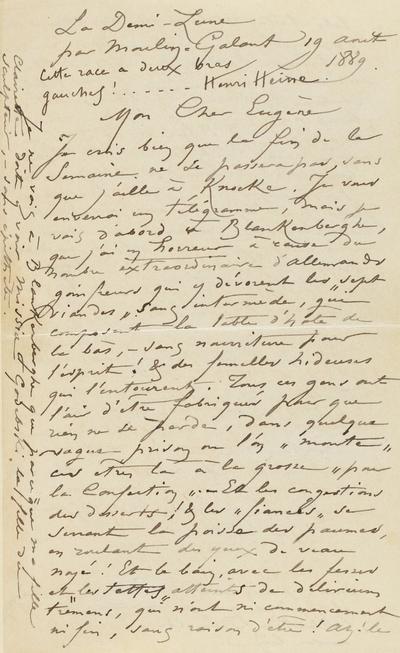 La Demi-Lune
par Moulin-Galant 19 août
1889
Cette race a deux bras
gauches! . . . . . . Henri Heine.
Mon Cher Eugène
Je crois bien que la fin de la
Semaine ne se passera pas, sans
que j'aille à Knocke. Je vous
enverrai un télégramme, mais je
vais d'abord à Blankenberghe,
que j'ai en horreur à cause du
nombre extraordinaire d'allemands
goinfreurs qui y dévorent les "sept
viandes" sans intermède, qui
composent la table d'hôte de
là bas, – sans nourriture pour
l'esprit! & des femelles hideuses
qui l'entourent. Tous ces gens ont
l'air d'être fabriqués pour que
rien ne se perde, dans quelque
vague prison où l'on "monte"
ces êtres là à la grosse "pour
la Confection". – Et les congestions
des desserts! & les "fiancés" se
serrant la poisse des paumes,
en roulant des yeux de veau
noyé! Et le bain, avec les fesses
et les tettes atteints de délirium
tremens, qui n'ont ni commencement
ni fin, sans raison d'être!
Je ne vais à Blankenberghe que parce que ma fille
Claire doit y voir
sculpteur, – sans épithète.